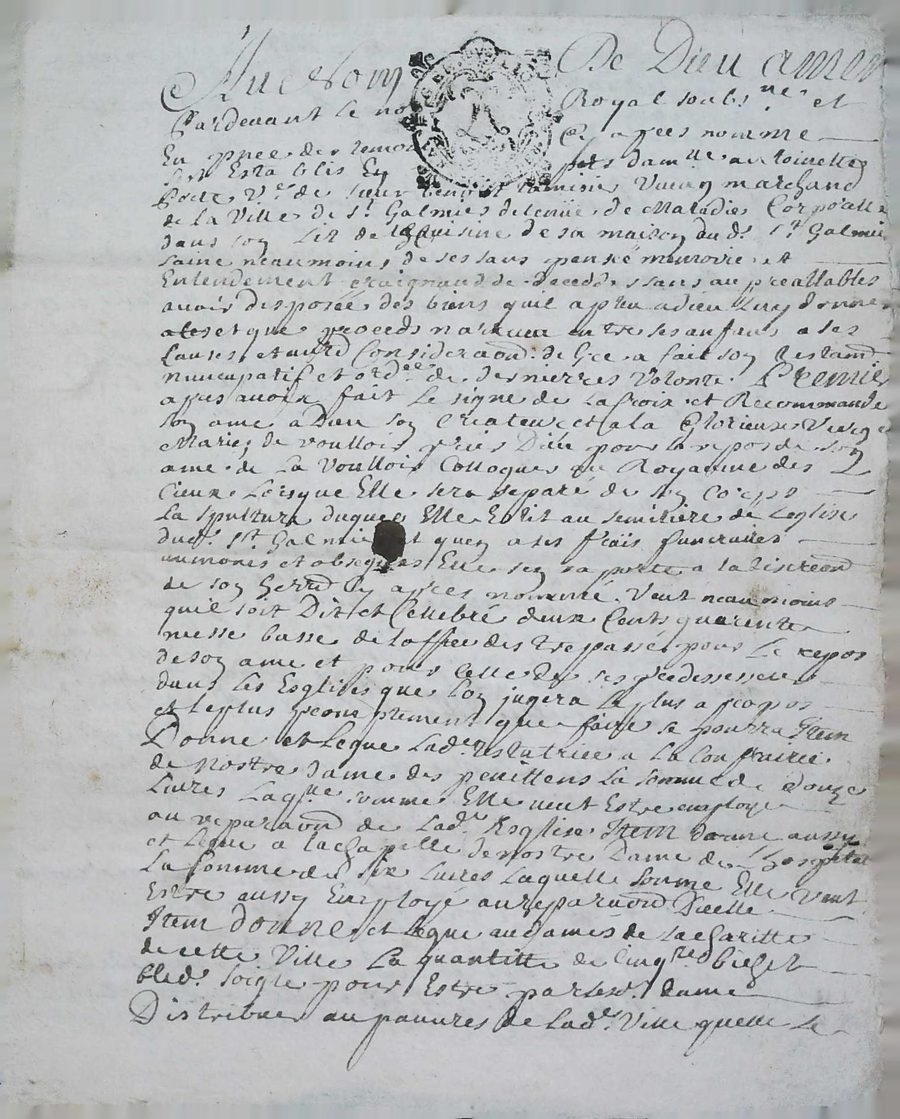 Au Nom De Dieu amen
Pardevant le no Royal soubs.ne et
En pnce des temoi Cy apres nomme
fut Establis En damlle antoinette
Ve de sieur benoit vivan marchand
de la Ville de St Galmier detenüe de Maladie Corporelle
dans son Lit de la Cuisine de sa maison du d. St Galmier
saine neaumoins de ses sans pensée memoire et
Entendement craignand de decedé sans au preallables
avoir disposée des biens quil a pleu a dieu luy donne
et que proceds n'arrive entre ses anfans a ses
Causes et meurd Consideraond de Gré a fait son testamt
nuncupatif et ordce de dernierres Volonté Premier
apres avoir fait le signe de la Croix et Recommandé
son ame a Dieu son Createur et a la Glorieuse Vierge
Marie, de voulloir prier Dieu pour le repos de son
ame de La Voulloir Colloquer au Royaume des
Cieux Lorsque Elle sera separé de son Corps
La spulture duquel Elle Eslit au semitiere de Leglise
dud. St Galmier et quen a ses fraïs funeraires
aumones et obseques Elle sen raporte a la discreond
de son herred Cy apres nommé Veut neaumoins
quil soit Dit et Cellebré deux Cents quarente
messe basse de loffice des trepassé pour Le repos
de son ame et pour celle de ses predessesseurs
dans les Esglises que lon jugera le plus a propos
et le plus promptement que faire se pourra Item
Donne et Legue Lade testatrice a La Confrairie
de Nostre dame des penittens La somme de douze
Livres Laqlle somme Elle veut Estre employé
au reparaond de Lade Esglise Item donne aussy
et Legue a la Chapelle de nostre Dame de l'hospital
La somme de six Livres Laquelle somme Elle Veut
Estre aussy Employé au reparaond D'icelle
Item donne et Legue au dames de la Charitte
de cette Ville La quantitte de Cinq bichet
bled soigle pour Estre par lesd. dame
Distribuer au pauvres de Lade Ville quelle Le